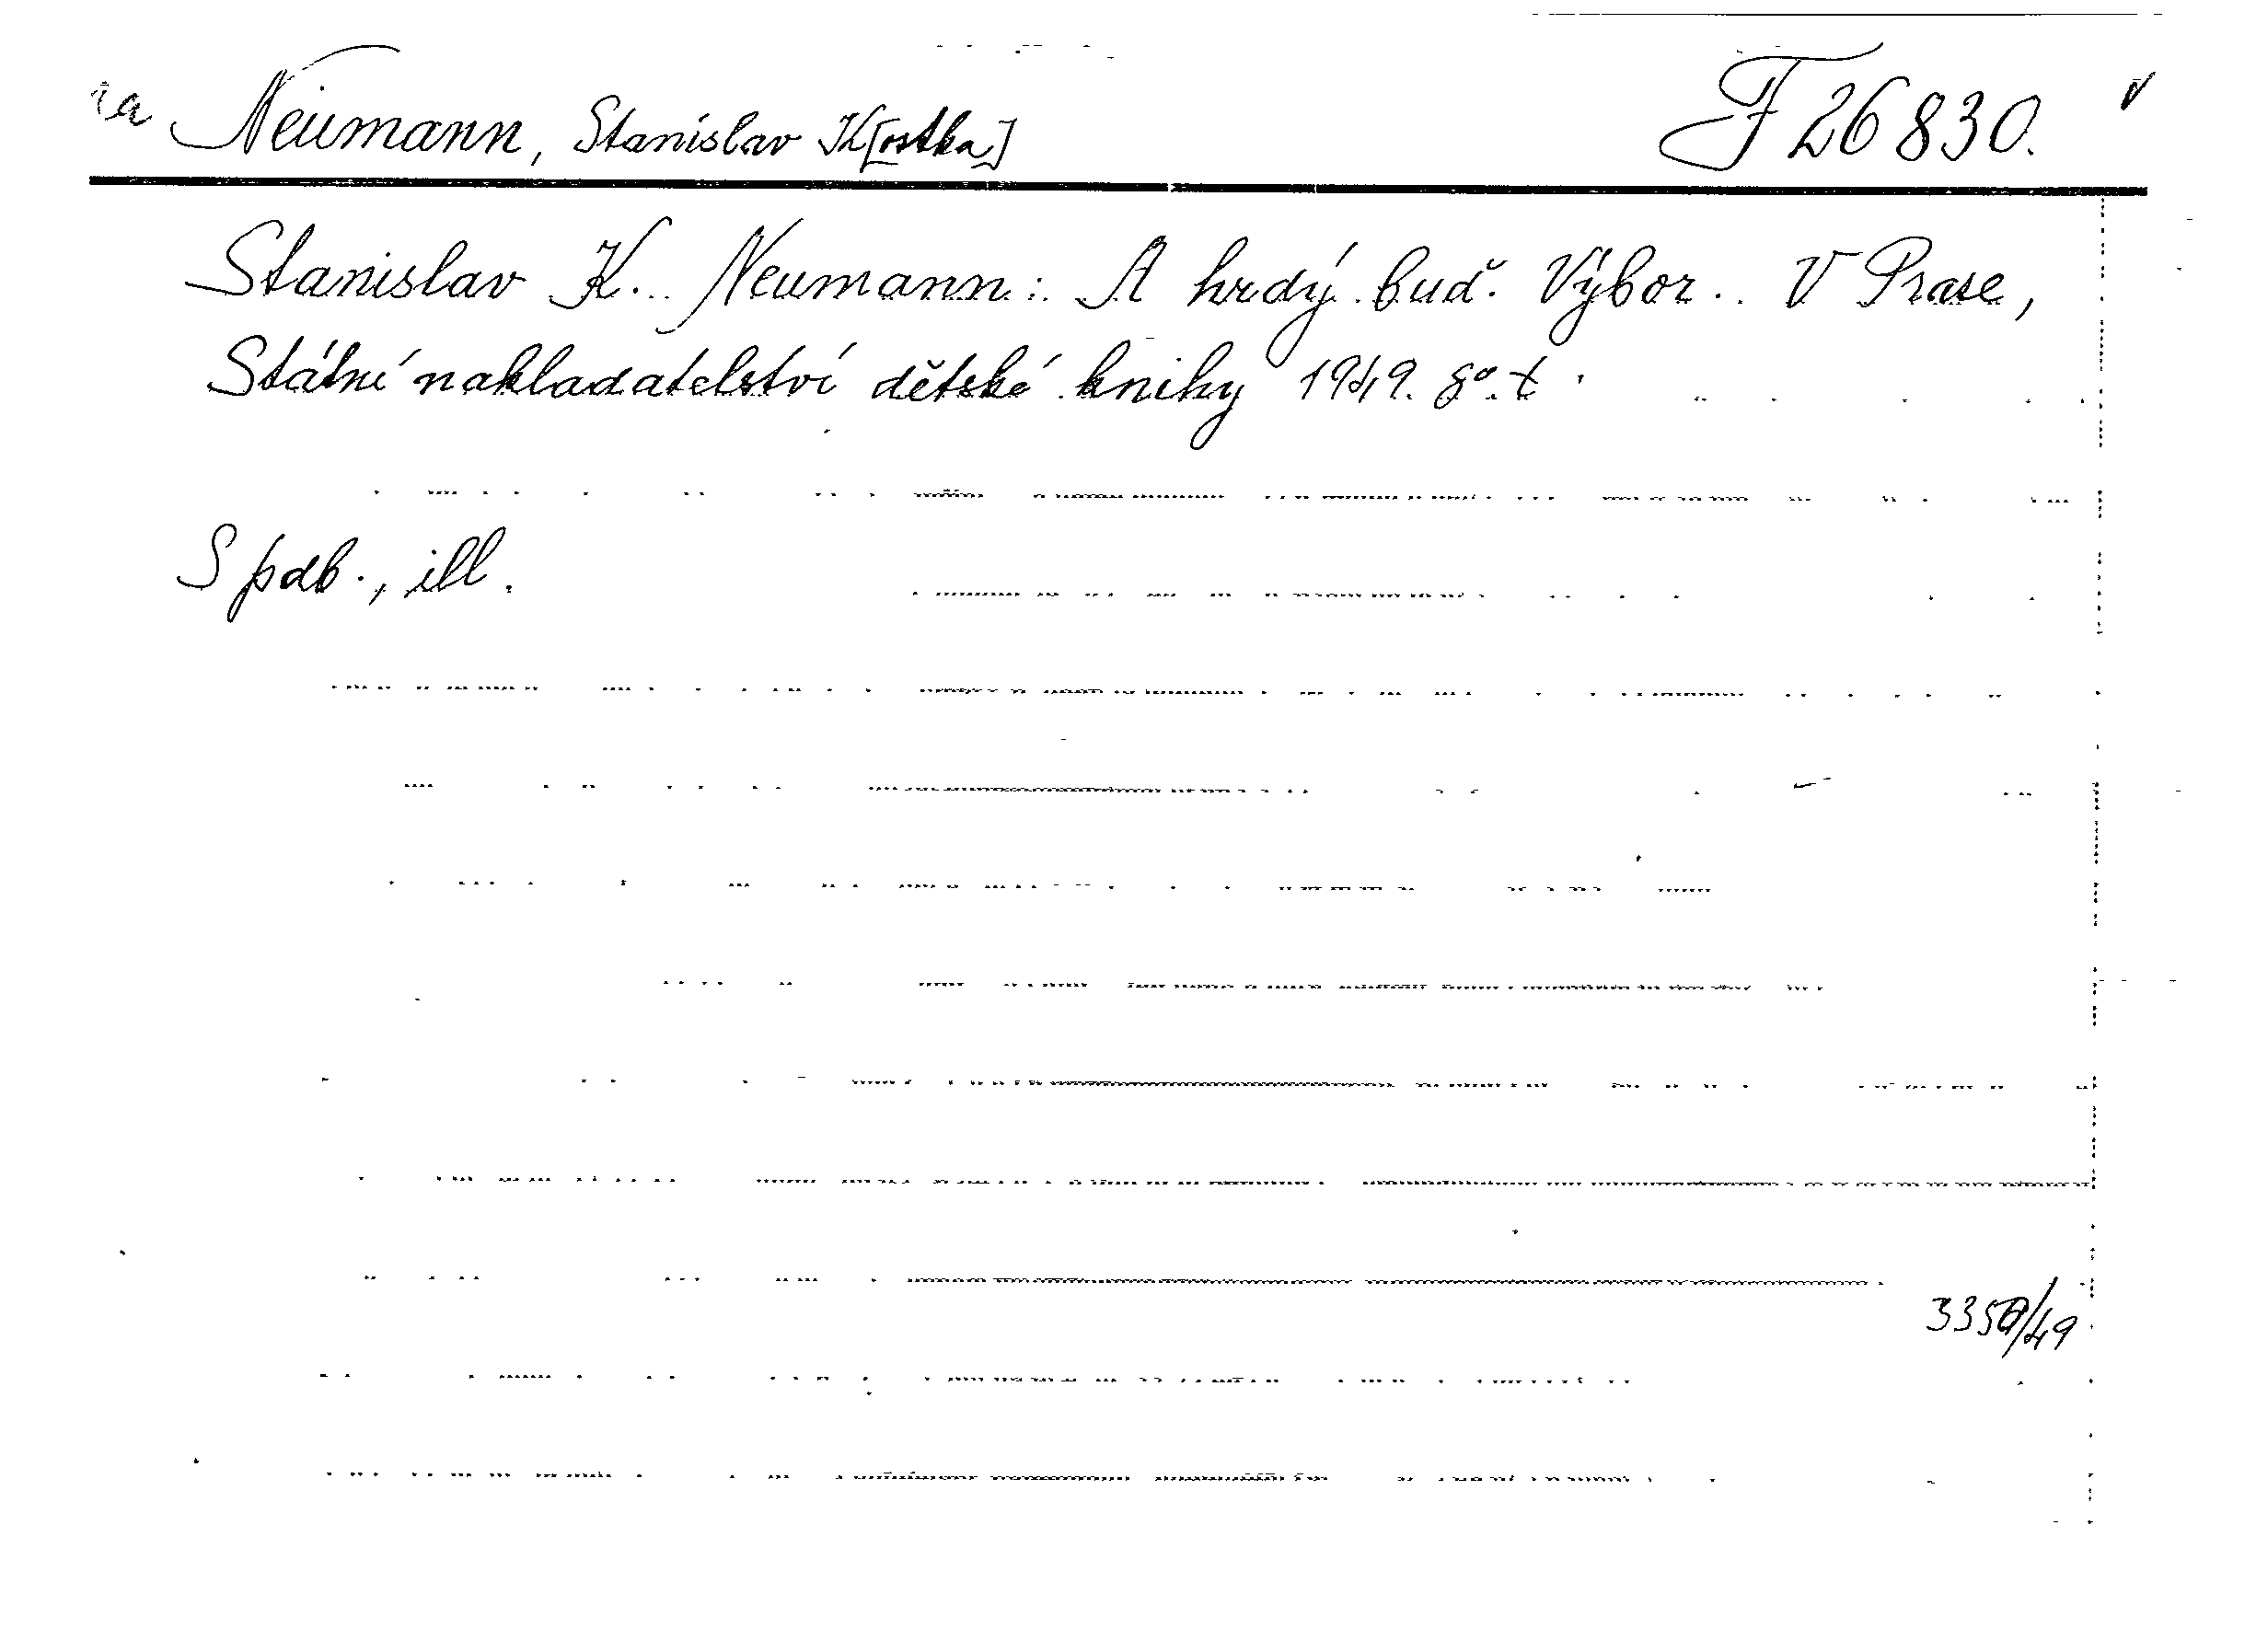 Neumann, Stanislav K[ostka] F 26830.
Stanislav K. Neumann: A hrdý buď. Výbor. V Praze,
Státní nakladatelství dětské knihy 1949. 8°. t.
S pdb., ill.